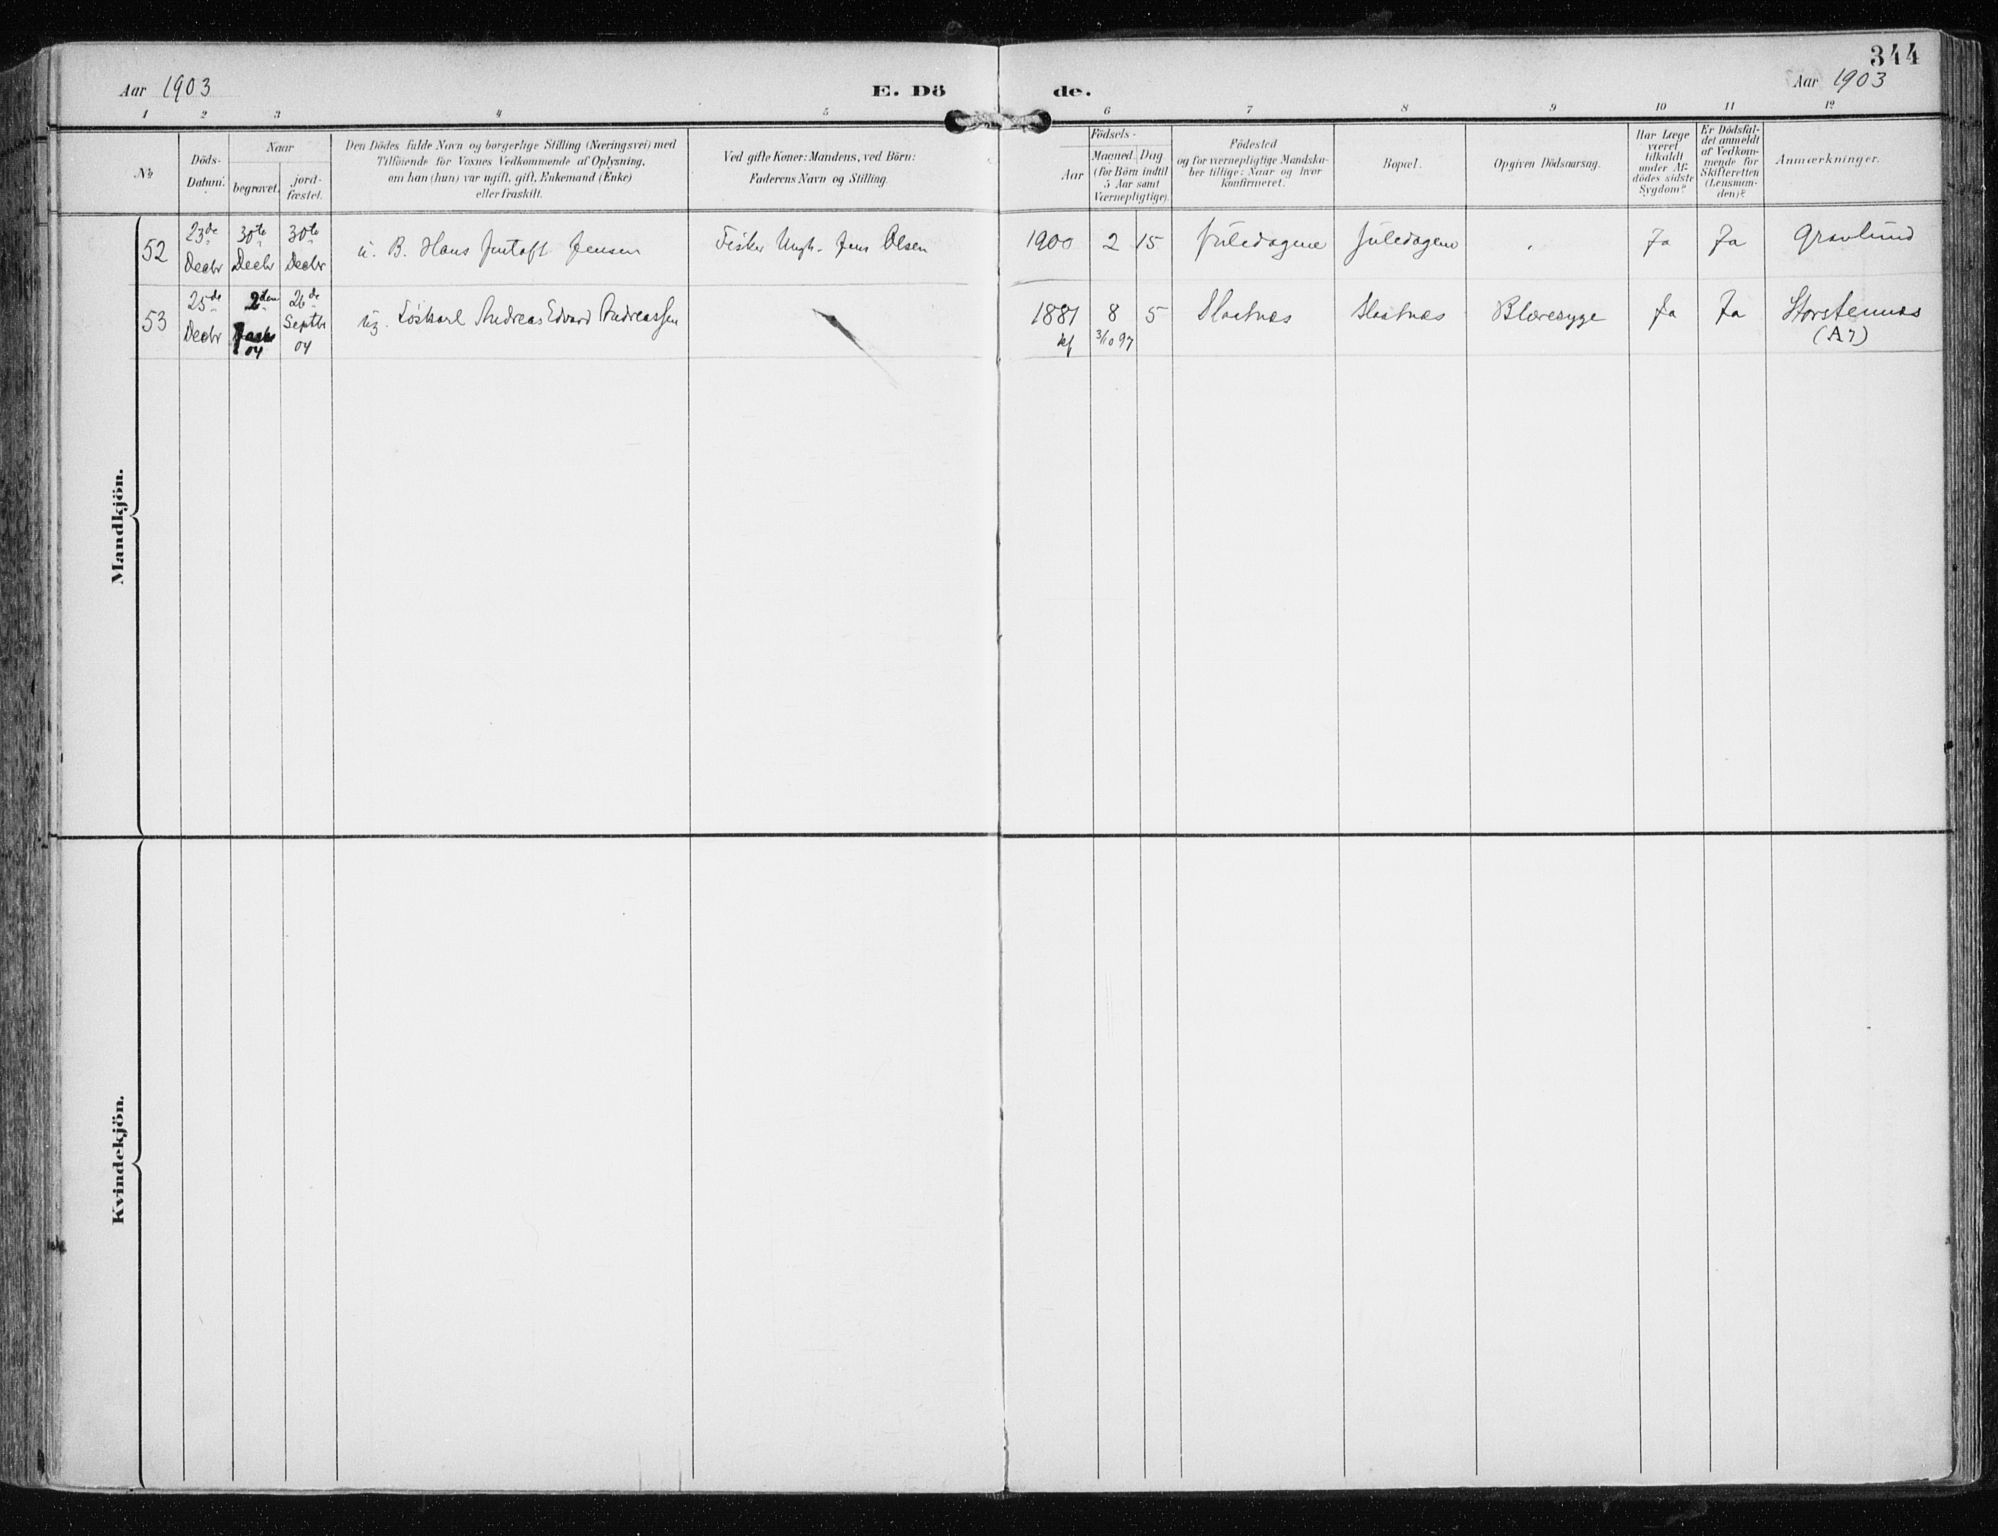 344
Aar 1903
E. Dö
de.
Aar 1903
1 2 3 4 5 6 7 8 9 10 11 12
№
Döds-
Datum.
Naar
begravet.
jord-
fæstet.
Den Dödes fulde Navn og borgerlige Stilling (Næringsvei) med
Tilföiende for Voxnes Vedkommende af Oplysning,
om han (hun) var ugift, gift, Enkemand (Enke)
eller fraskilt.
Ved gifte Koner: Mandens, ved Börn:
Faderens Navn og Stilling.
Födsels-
Aar
Maaned Dag
(for Börn indtil
5 Aar samt
Værnepligtige).
Födested
og for værnepligtige Mandska-
ber tillige: Naar og hvor
konfirmeret.
Bopæl.
Opgiven Dödsaarsag.
Har Læge
været
tilkaldt
under Af-
dödes sidste
Sygdom?
Er Dödsfal-
det anmeldt
af Vedkom-
mende for
Skifteretten
(Lensman-
den)?
Anmærkninger.
Mandkjön.
52
23de
Decbr
30te
Decbr
30te
Decbr
u. B. Hans Jentoft Jensen
Fisker Ungk. Jens Olsen
1900 2 15
Juledagene
Juledagene
Ja
Ja
Gravlund
53
25de
Decbr
2den
04
26de
Septbr
04
ug. Løskarl Andreas Edvard Andreassen
1881 8 5
kf 3/10 97
Slaatnæs
Slaatnæs
Blæresyge
Ja
Ja
Storstennæs
(A7)
Kvindekjön.